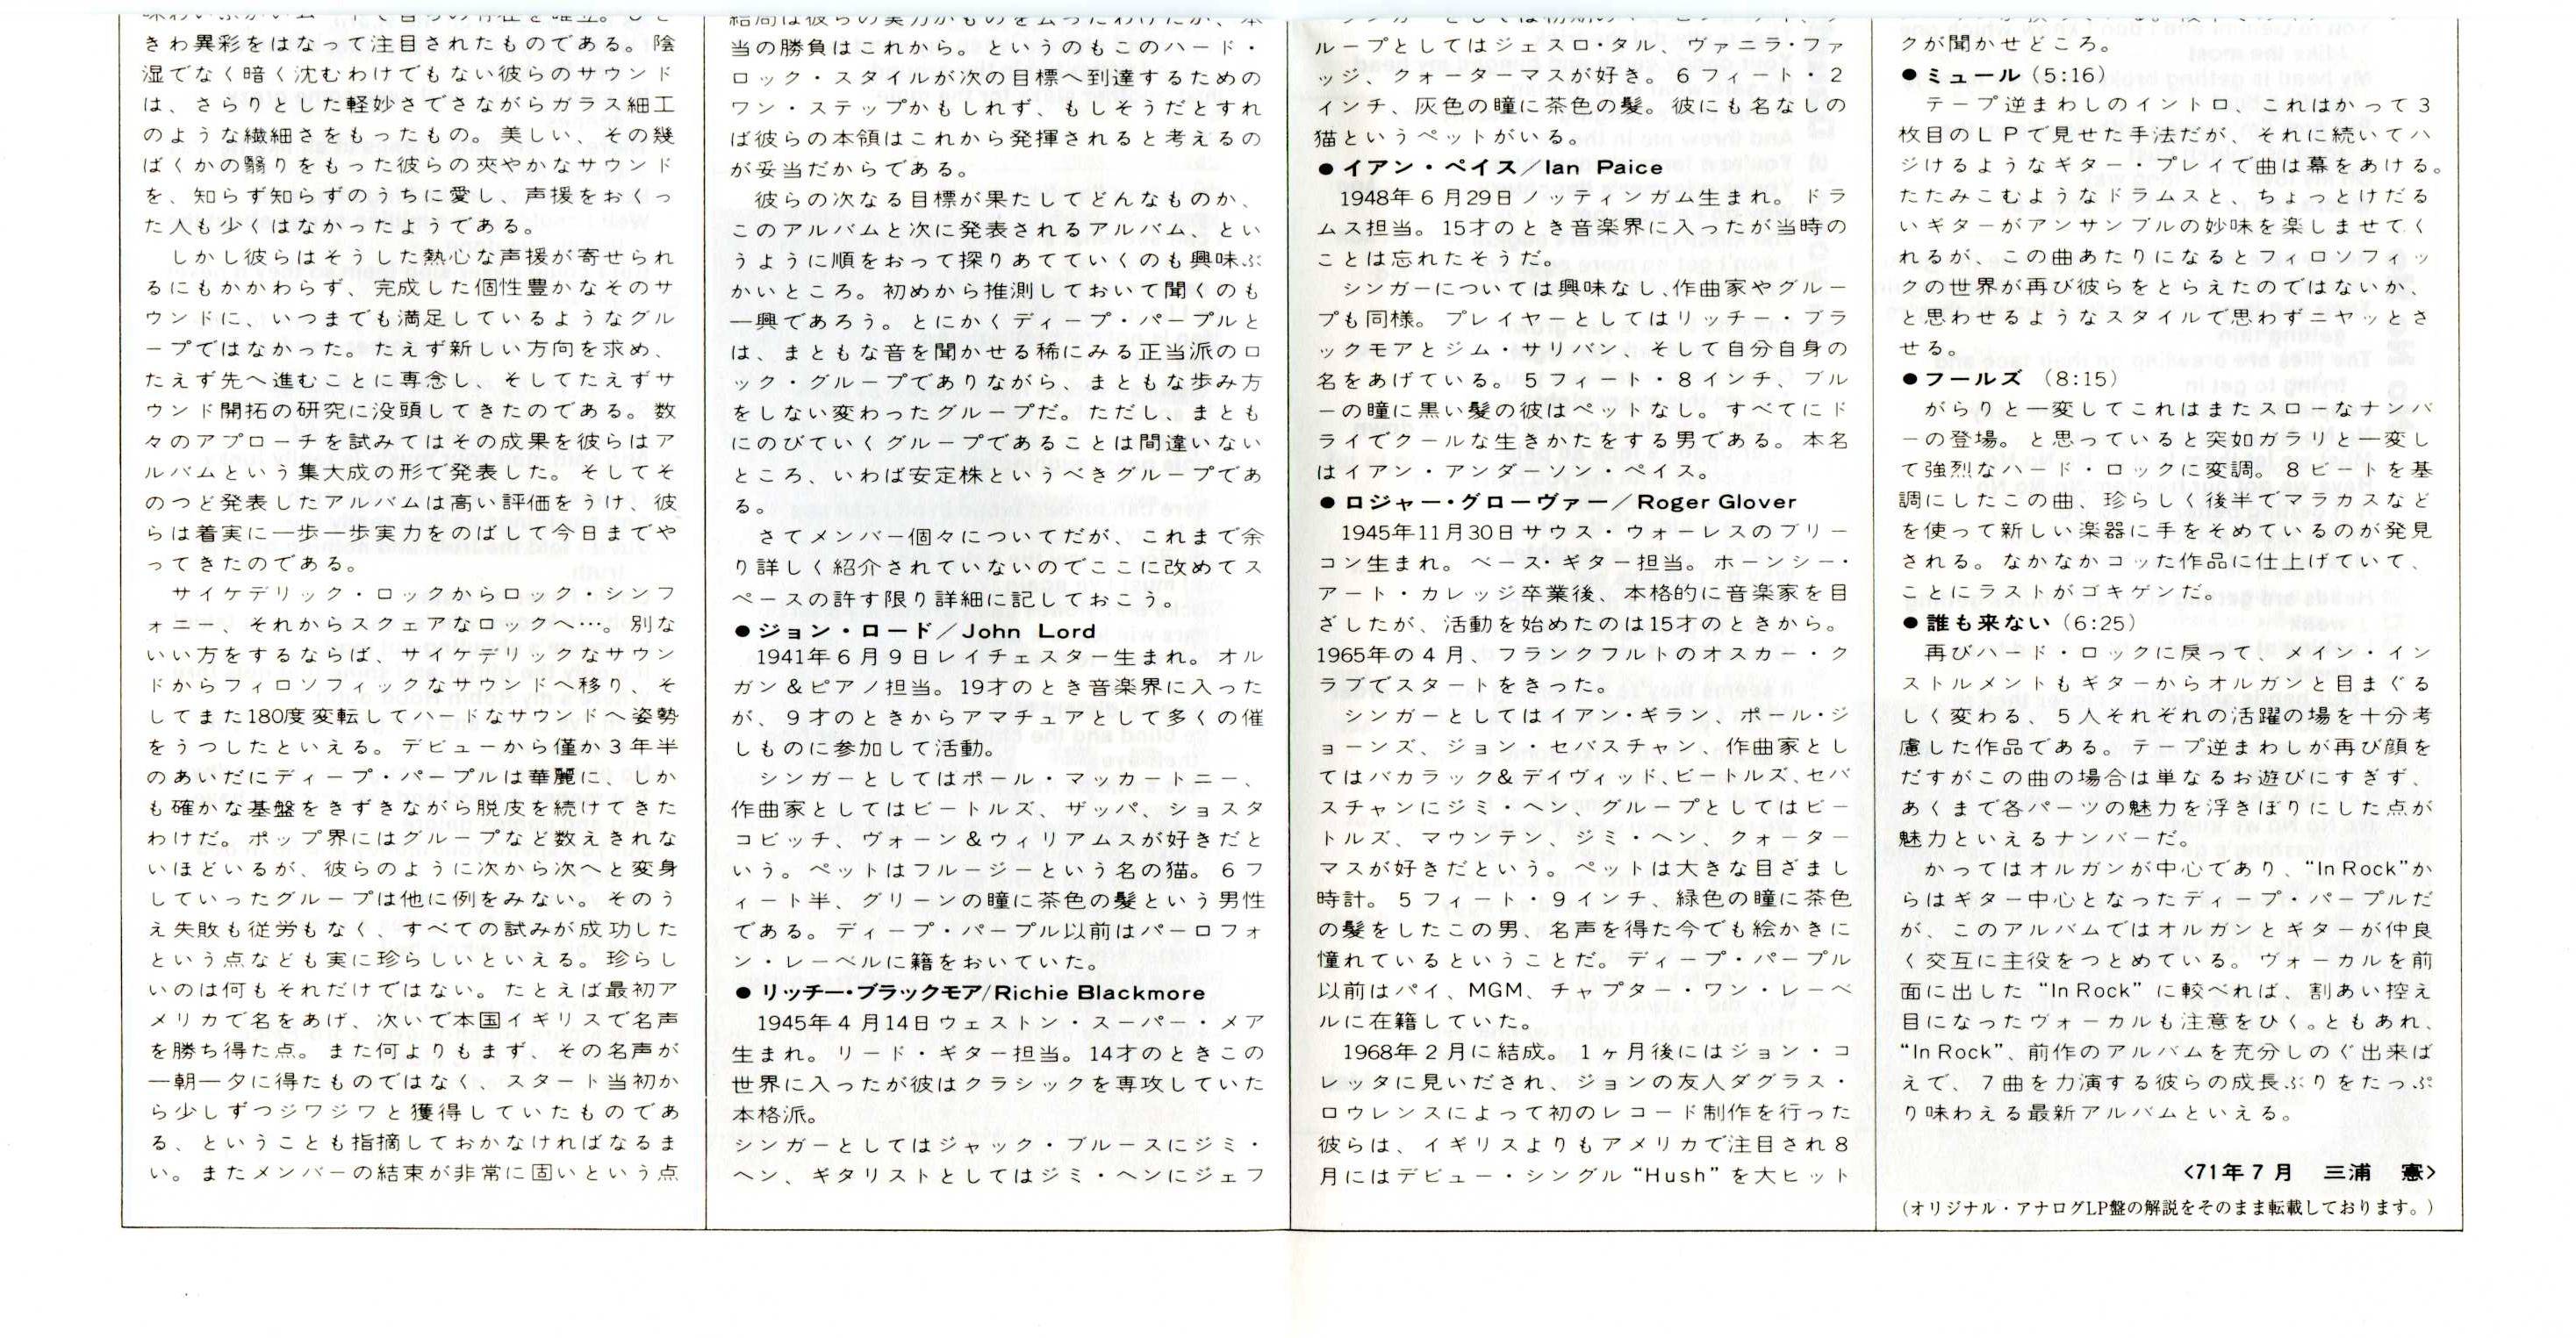 きわ異彩をはなって注目されたものである。陰
湿でなく暗く沈むわけでもない彼らのサウンド
は、さらりとした軽妙さでさながらガラス細工
のような繊細さをもったもの。美しい、その幾
ばくかの翳りをもった彼らの爽やかなサウンド
を、知らず知らずのうちに愛し、声援をおくっ
た人も少くはなかったようである。
しかし彼らはそうした熱心な声援が寄せられ
るにもかかわらず、完成した個性豊かなそのサ
ウンドに、いつまでも満足しているようなグル
ープではなかった。たえず新しい方向を求め、
たえず先へ進むことに専念し、そしてたえずサ
ウンド開拓の研究に没頭してきたのである。数
々のアプローチを試みてはその成果を彼らはア
ルバムという集大成の形で発表した。そしてそ
のつど発表したアルバムは高い評価をうけ、彼
らは着実に一歩一歩実力をのばして今日までや
ってきたのである。
サイケデリック・ロックからロック・シンフ
ォニー、それからスクェアなロックへ…。別な
いい方をするならば、サイケデリックなサウン
ドからフィロソフィックなサウンドへ移り、そ
してまた180度変転してハードなサウンドへ姿勢
をうつしたといえる。デビューから僅か3年半
のあいだにディープ・パープルは華麗に、しか
も確かな基盤をきずきながら脱皮を続けてきた
わけだ。ポップ界にはグループなど数えきれな
いほどいるが、彼らのように次から次へと変身
していったグループは他に例をみない。そのう
え失敗も従労もなく、すべての試みが成功した
という点なども実に珍らしいといえる。珍らし
いのは何もそれだけではない。たとえば最初ア
メリカで名をあげ、次いで本国イギリスで名声
を勝ち得た点。また何よりもまず、その名声が
一朝一夕に得たものではなく、スタート当初か
ら少しずつジワジワと獲得していたものであ
る、ということも指摘しておかなければなるま
い。またメンバーの結束が非常に固いという点
当の勝負はこれから。というのもこのハード・
ロック・スタイルが次の目標へ到達するための
ワン・ステップかもしれず、もしそうだとすれ
ば彼らの本領はこれから発揮されると考えるの
が妥当だからである。
彼らの次なる目標が果たしてどんなものか、
このアルバムと次に発表されるアルバム、とい
うように順をおって探りあてていくのも興味ぶ
かいところ。初めから推測しておいて聞くのも
一興であろう。とにかくディープ・パープルと
は、まともな音を聞かせる稀にみる正当派のロ
ック・グループでありながら、まともな歩み方
をしない変わったグループだ。ただし、まとも
にのびていくグループであることは間違いない
ところ、いわば安定株というべきグループであ
る。
さてメンバー個々についてだが、これまで余
り詳しく紹介されていないのでここに改めてス
ペースの許す限り詳細に記しておこう。
●ジョン・ロード／John Lord
1941年6月9日レイチェスター生まれ。オル
ガン＆ピアノ担当。19才のとき音楽界に入った
が、9才のときからアマチュアとして多くの催
しものに参加して活動。
シンガーとしてはポール・マッカートニー、
作曲家としてはビートルズ、ザッパ、ショスタ
コビッチ、ヴォーン＆ウィリアムスが好きだと
いう。ペットはフルージーという名の猫。6フ
ィート半、グリーンの瞳に茶色の髪という男性
である。ディープ・パープル以前はパーロフォ
ン・レーベルに籍をおいていた。
●リッチー・ブラックモア/Richie Blackmore
1945年4月14日ウェストン・スーパー・メア
生まれ。リード・ギター担当。14才のときこの
世界に入ったが彼はクラシックを専攻していた
本格派。
シンガーとしてはジャック・ブルースにジミ・
ヘン、ギタリストとしてはジミ・ヘンにジェフ
ループとしてはジェスロ・タル、ヴァニラ・ファ
ッジ、クォーターマスが好き。6フィート・2
インチ、灰色の瞳に茶色の髪。彼にも名なしの
猫というペットがいる。
●イアン・ペイス／Ian Paice
1948年6月29日ノッティンガム生まれ。ドラ
ムス担当。15才のとき音楽界に入ったが当時の
ことは忘れたそうだ。
シンガーについては興味なし、作曲家やグルー
プも同様。プレイヤーとしてはリッチー・ブラ
ックモアとジム・サリバン、そして自分自身の
名をあげている。5フィート・8インチ、ブル
ーの瞳に黒い髪の彼はペットなし。すべてにド
ライでクールな生きかたをする男である。本名
はイアン・アンダーソン・ペイス。
●ロジャー・グローヴァー／Roger Glover
1945年11月30日サウス・ウォーレスのブリー
コン生まれ。ベース・ギター担当。ホーンシー・
アート・カレッジ卒業後、本格的に音楽家を目
ざしたが、活動を始めたのは15才のときから。
1965年の4月、フランクフルトのオスカー・ク
ラブでスタートをきった。
シンガーとしてはイアン・ギラン、ポール・ジ
ョーンズ、ジョン・セバスチャン、作曲家とし
てはバカラック＆デイヴィッド、ビートルズ、セバ
スチャンにジミ・ヘン、グループとしてはビー
トルズ、マウンテン、ジミ・ヘン、クォーター
マスが好きだという。ペットは大きな目ざまし
時計。5フィート・9インチ、緑色の瞳に茶色
の髪をしたこの男、名声を得た今でも絵かきに
憧れているということだ。ディープ・パープル
以前はパイ、MGM、チャプター・ワン・レーベ
ルに在籍していた。
1968年2月に結成。1ヶ月後にはジョン・コ
レッタに見いだされ、ジョンの友人ダグラス・
ロウレンスによって初のレコード制作を行った
彼らは、イギリスよりもアメリカで注目され8
月にはデビュー・シングル“Hush”を大ヒット
クが聞かせどころ。
●ミュール（5:16）
テープ逆まわしのイントロ、これはかって3
枚目のLPで見せた手法だが、それに続いてハ
ジけるようなギター・プレイで曲は幕をあける。
たたみこむようなドラムスと、ちょっとけだる
いギターがアンサンブルの妙味を楽しませてく
れるが、この曲あたりになるとフィロソフィッ
クの世界が再び彼らをとらえたのではないか、
と思わせるようなスタイルで思わずニヤッとさ
せる。
●フールズ（8:15）
がらりと一変してこれはまたスローなナンバ
ーの登場。と思っていると突如ガラリと一変し
て強烈なハード・ロックに変調。8ビートを基
調にしたこの曲、珍らしく後半でマラカスなど
を使って新しい楽器に手をそめているのが発見
される。なかなかコッた作品に仕上げていて、
ことにラストがゴキゲンだ。
●誰も来ない（6:25）
再びハード・ロックに戻って、メイン・イン
ストルメントもギターからオルガンと目まぐる
しく変わる、5人それぞれの活躍の場を十分考
慮した作品である。テープ逆まわしが再び顔を
だすがこの曲の場合は単なるお遊びにすぎず、
あくまで各パーツの魅力を浮きぼりにした点が
魅力といえるナンバーだ。
かってはオルガンが中心であり、“In Rock”か
らはギター中心となったディープ・パープルだ
が、このアルバムではオルガンとギターが仲良
く交互に主役をつとめている。ヴォーカルを前
面に出した“In Rock”に較べれば、割あい控え
目になったヴォーカルも注意をひく。ともあれ、
“In Rock”、前作のアルバムを充分しのぐ出来ば
えで、7曲を力演する彼らの成長ぶりをたっぷ
り味わえる最新アルバムといえる。
<71年7月 三浦 憲>
（オリジナル・アナログLP盤の解説をそのまま転載しております。）